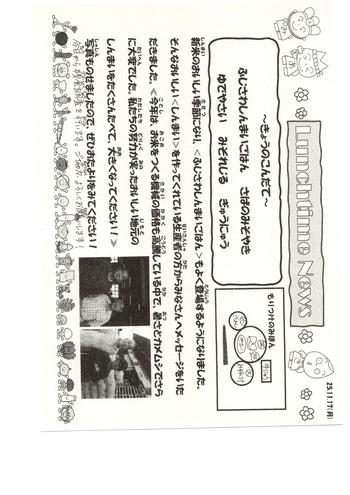 25.11.17(月)
Lunchtime News
～きょうのこんだて～
ふじさわしんまいごはん　さばのみそやき
ゆでやさい　みぞれじる　ぎゅうにゅう
もりつけのみほん
新米のおいしい季節になり、＜ふじさわしんまいごはん＞もよく登場するようになりました。
そんなおいしい＜しんまい＞を作ってくれている生産者の方からみなさんへメッセージをいた
だきました。≪今年は、お米をつくる機械の価格も高騰している中で、暑さとカメムシでさら
に大変でした。私たちの努力が実ったおいしい地元の
しんまいをたくさんたべて、大きくなってください！≫
写真ものせましたので、ぜひおたよりをみてください！